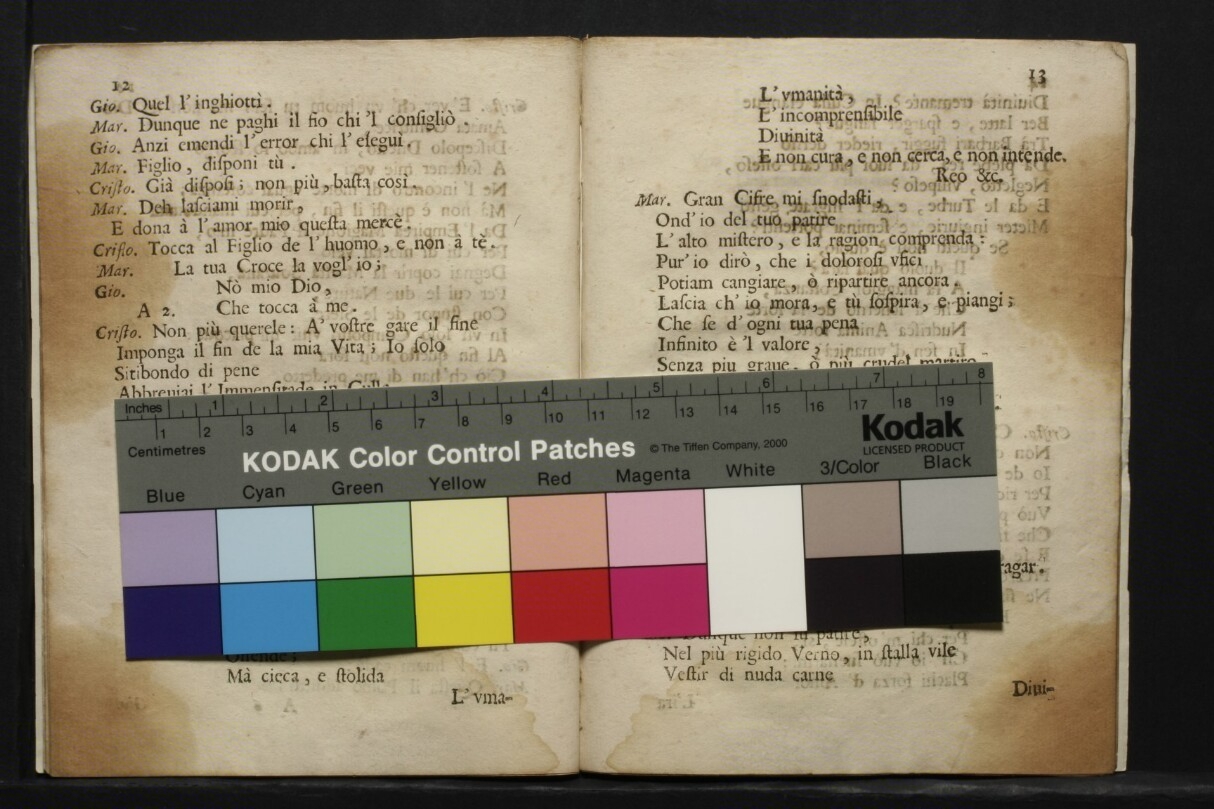 12
Gio. Quel l' inghiottì.
Mar. Dunque ne paghi il fio chi 'l consigliò.
Gio. Anzi emendi l' error chi l' eseguì.
Mar. Figlio, disponi tù.
Cristo. Già disposi; non più, basta così.
Mar. Deh lasciami morir,
E dona à l' amor mio questa mercè.
Cristo. Tocca al Figlio de l' huomo, e non à tè.
Mar. La tua Croce la vogl' io;
Gio. Nò mio Dio,
A 2. Che tocca à me.
Cristo. Non più querele: A' vostre gare il fine
Imponga il fin de la mia Vita; Io solo
Sitibondo di pene
Abbreviai l' Immensitade in
Offende;
Mà cieca, e stolida
L' vma-
13
L' vmanità,
E' incomprensibile
Diuinità
E non cura, e non cerca, e non intende.
Reo &c.
Mar. Gran Cifre mi snodasti,
Ond' io del tuo patire
L' alto mistero, e la ragion comprenda:
Pur' io dirò, che i dolorosi vficj
Potiam cangiare, ò ripartire ancora.
Lascia ch' io mora, e tù sospira, e piangi;
Che se d' ogni tua pena
Infinito è 'l valore,
Senza più graue, ò più crudel martiro
ragar.
Dunque non fù patire,
Nel più rigido Verno, in stalla vile
Vestir di nuda carne
Diui-
Inches 1 2 3 4 5 6 7 8
Centimetres 1 2 3 4 5 6 7 8 9 10 11 12 13 14 15 16 17 18 19
KODAK Color Control Patches © The Tiffen Company, 2000
Kodak
LICENSED PRODUCT
Blue Cyan Green Yellow Red Magenta White 3/Color Black